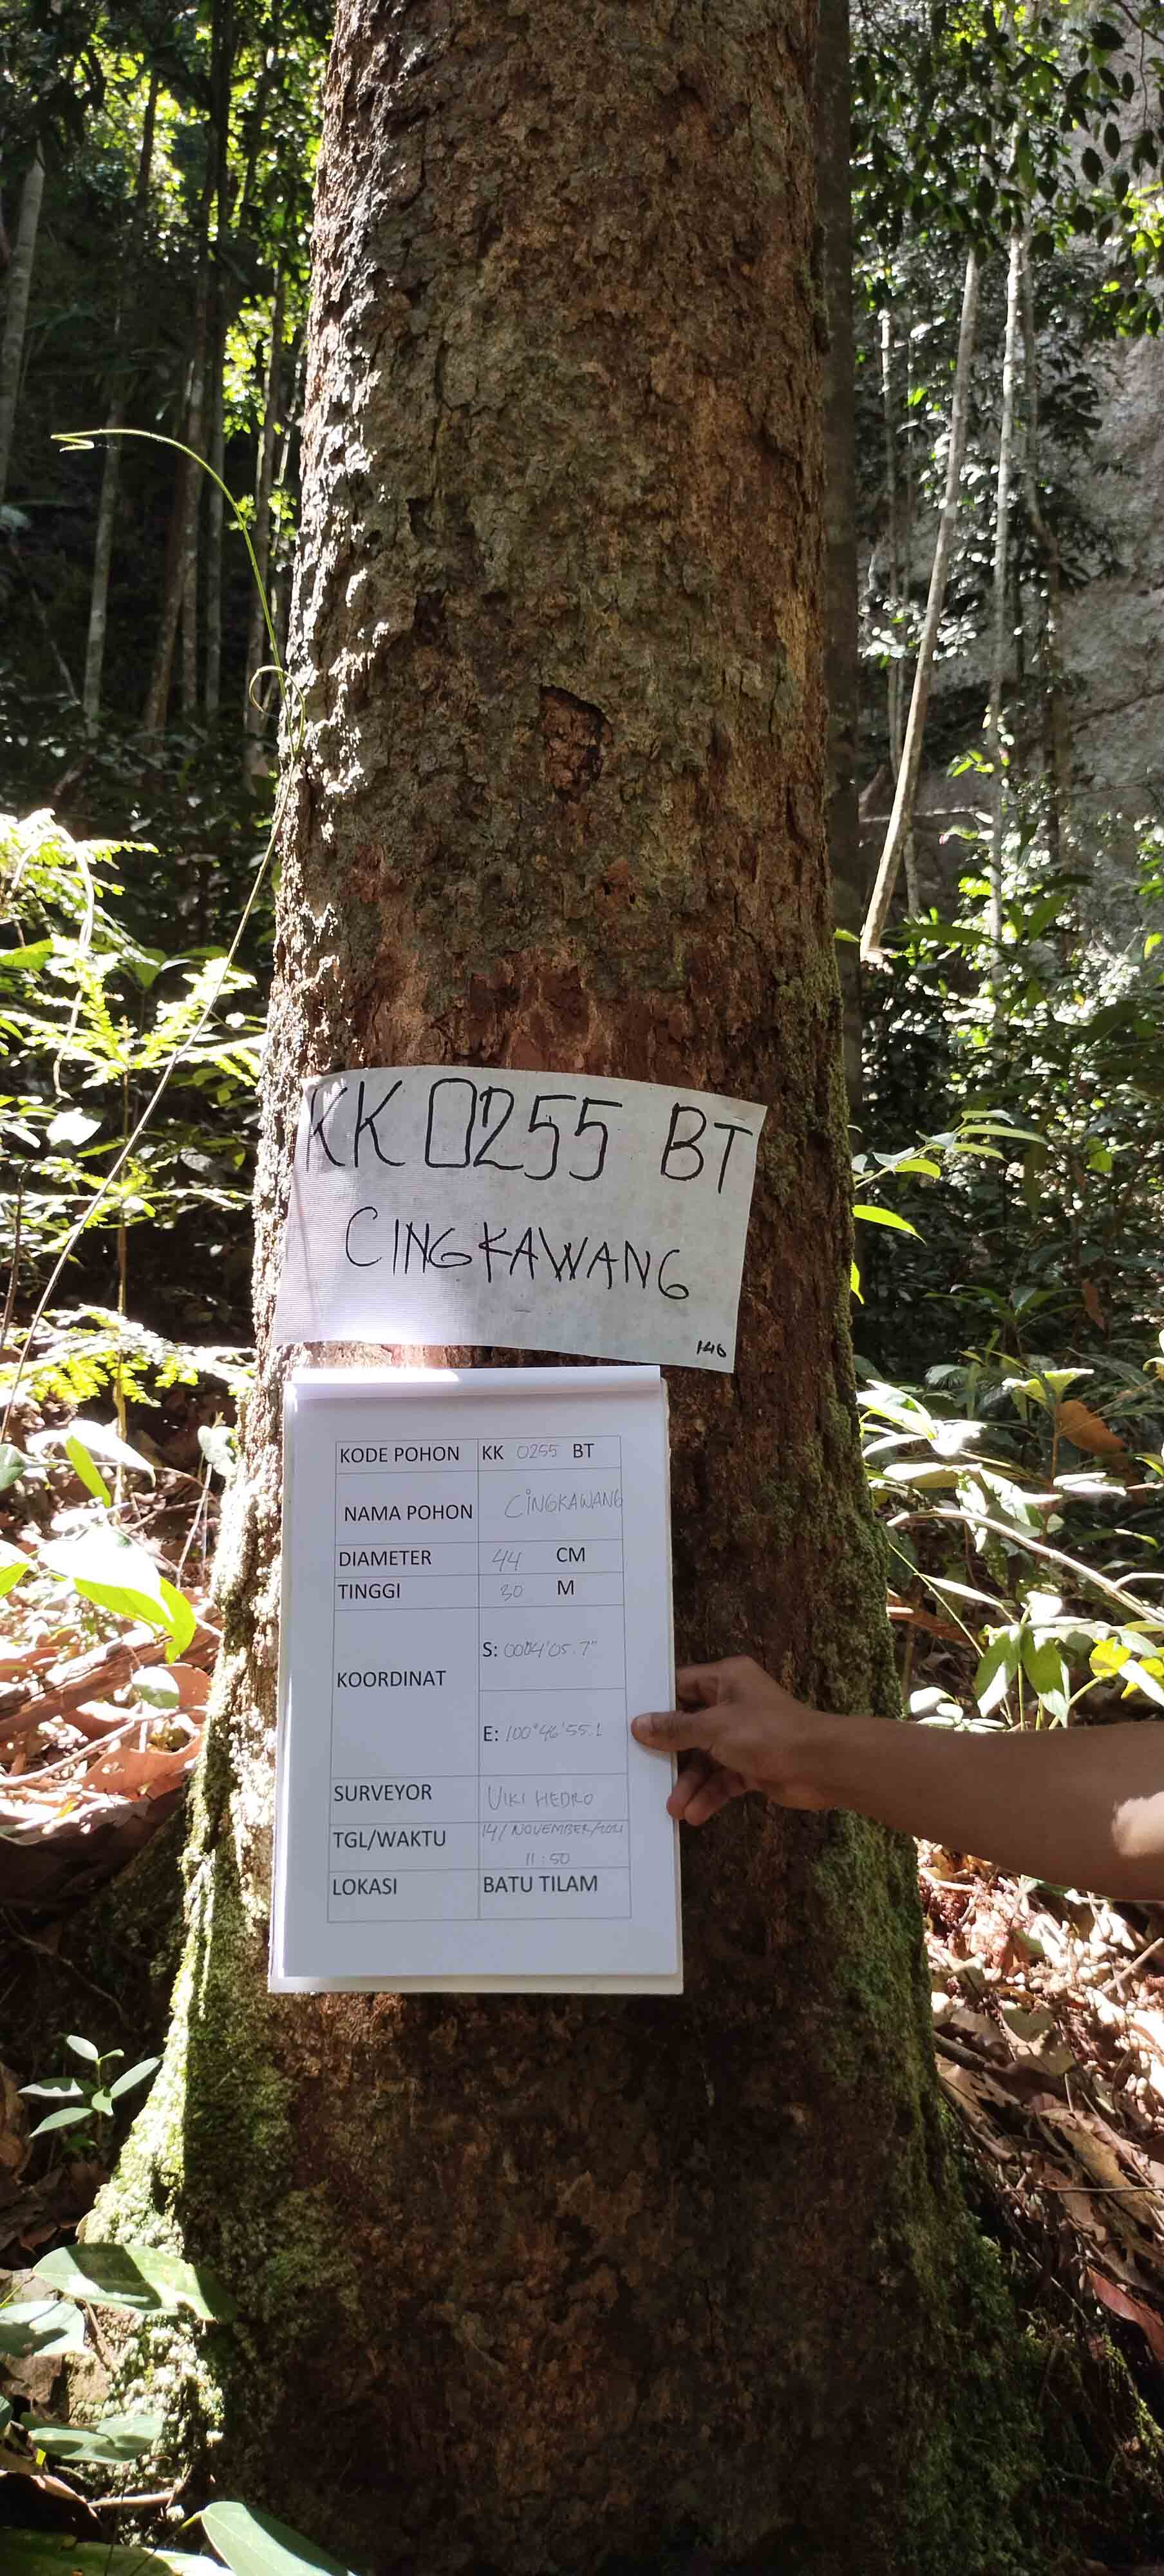 KK 0255 BT
CINGKAWANG
146
KODE POHON KK 0255 BT
NAMA POHON CINGKAWANG
DIAMETER 44 CM
TINGGI 30 M
KOORDINAT
S: 0004'05.7"
E: 100°46'55.1
SURVEYOR VIKI HEDRO
TGL/WAKTU 14/NOVEMBER/2021
11:50
LOKASI BATU TILAM